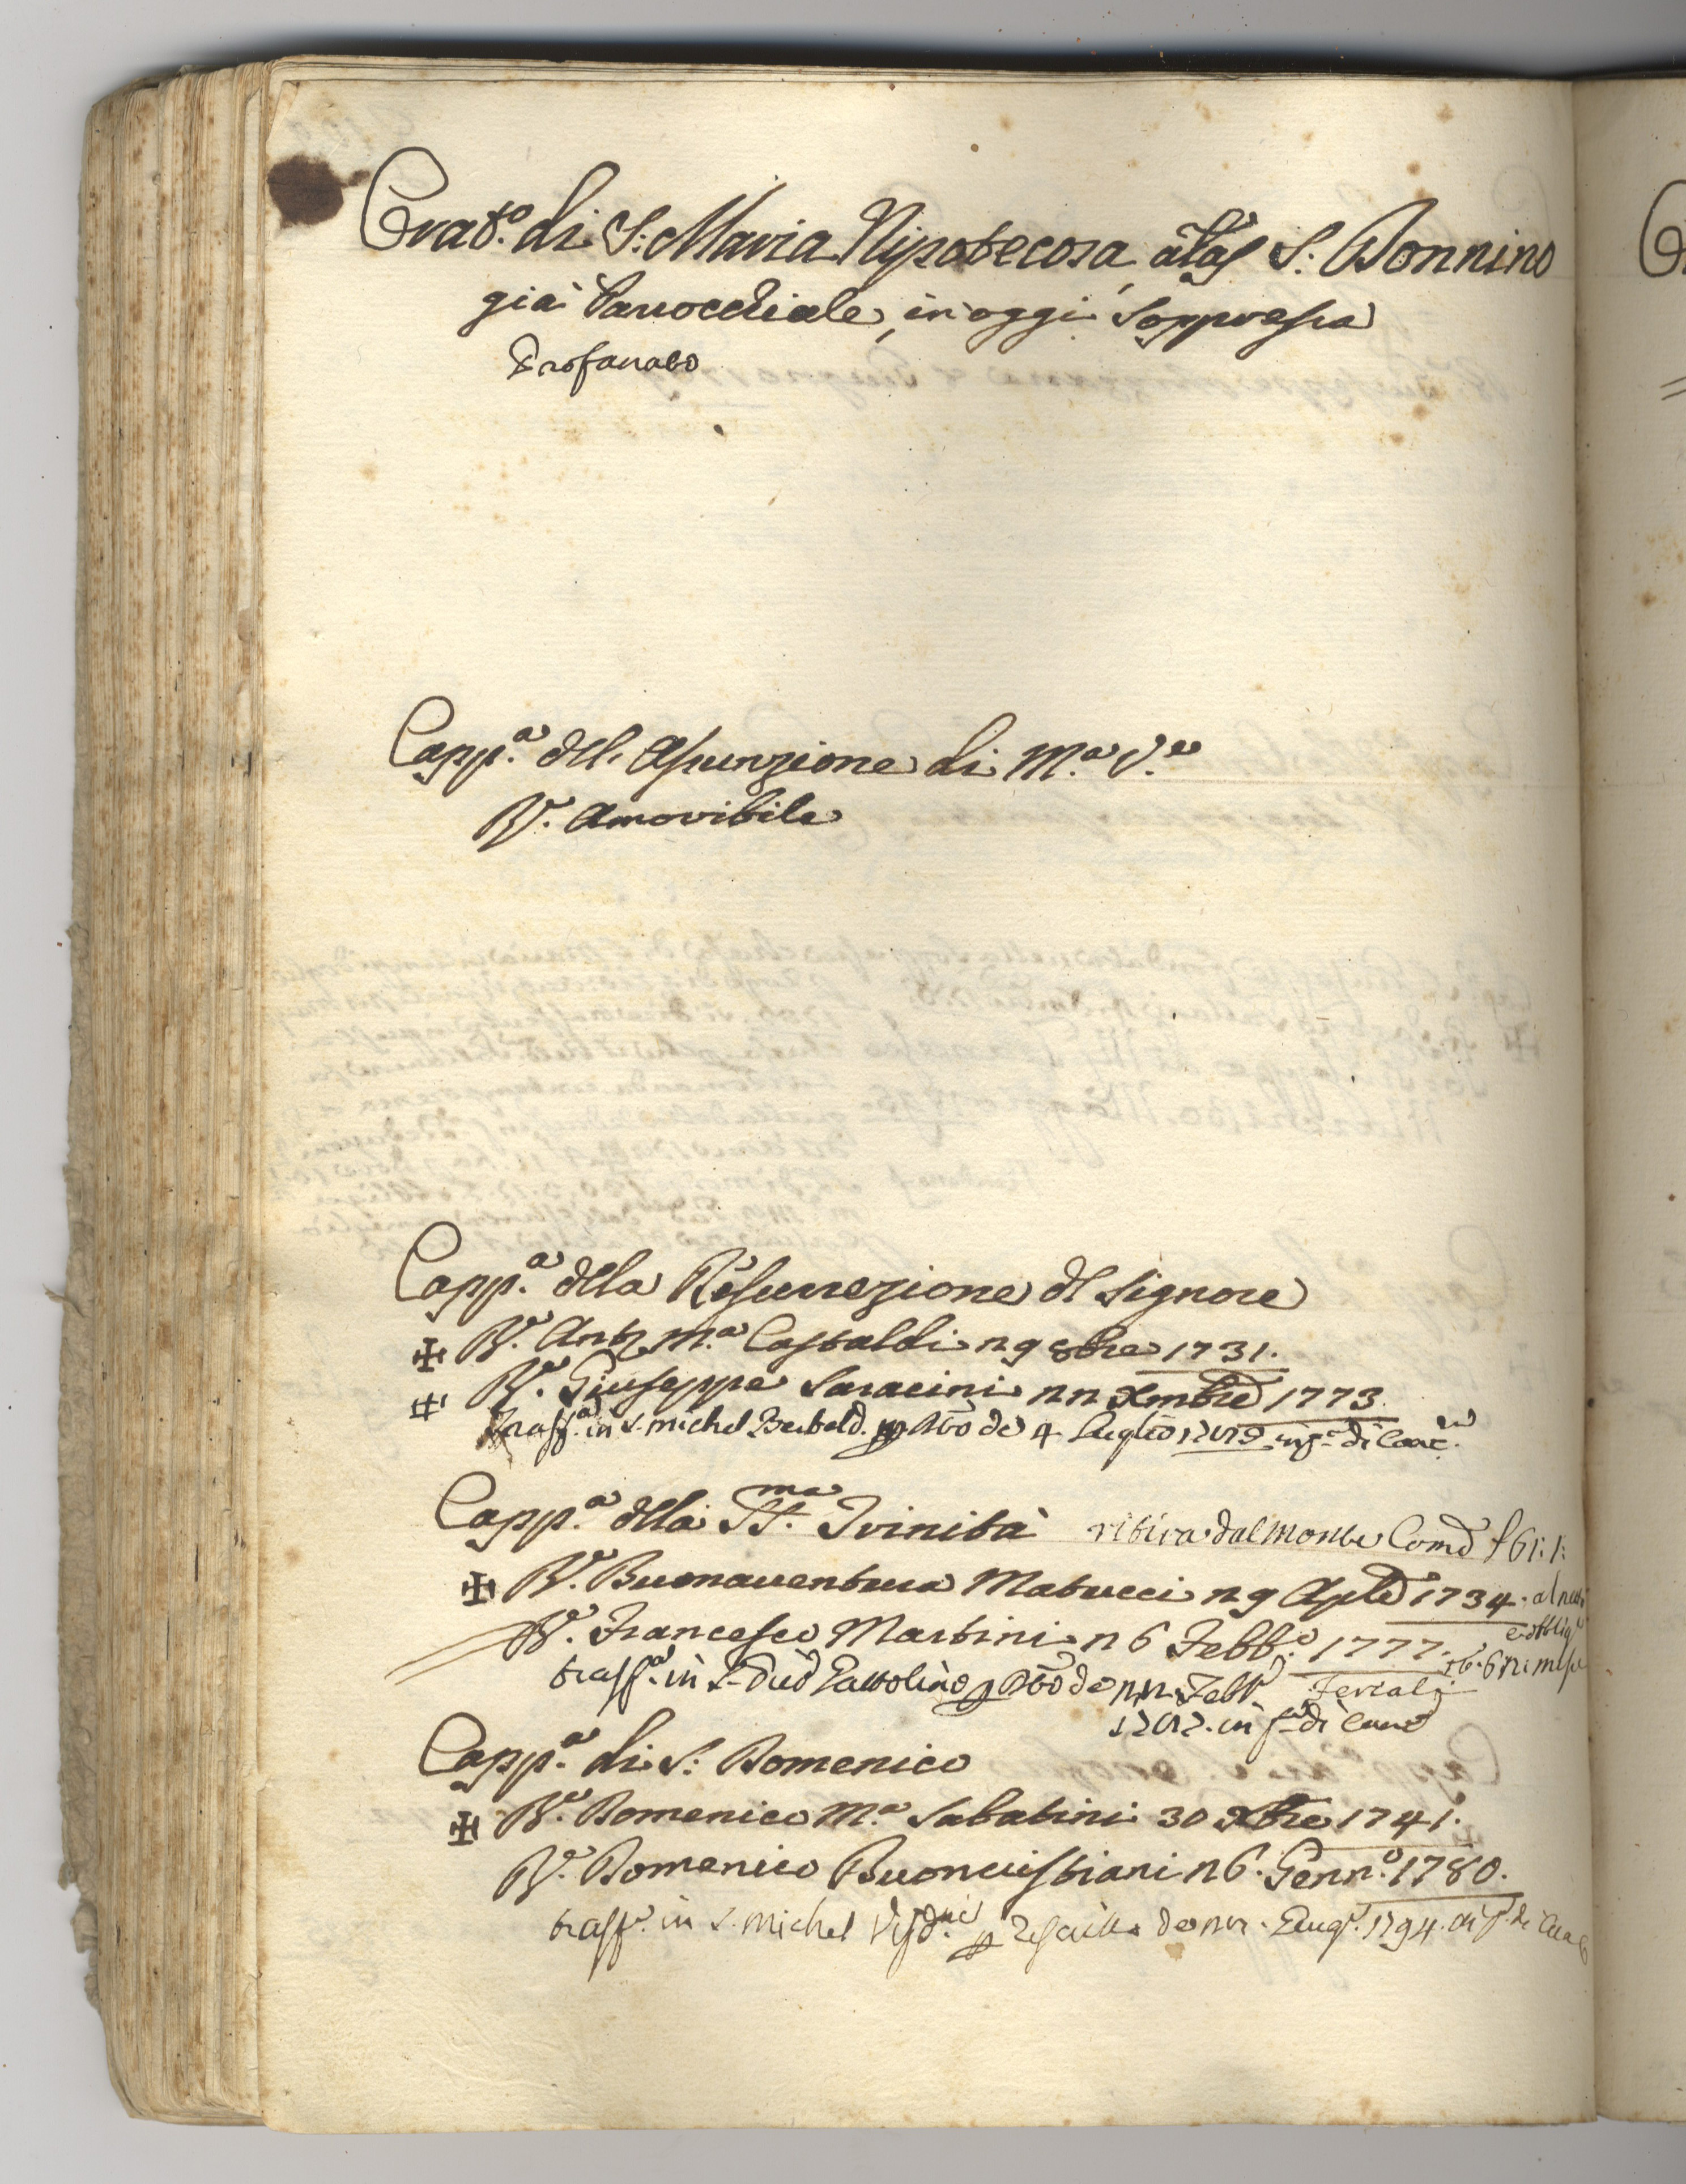 Orat.º di S: Maria Nipotecosa, alãs S: Donnino
già Parrocchiale, in oggi soppressa
Profanato
Capp.ª dell. Assunzione di M.ª V.ª
R.ᵉ Amovibile
Capp.ª dlla Resurrezione dl Signore
✠ R.ᵉ Ant.º M.ª Castaldi 29 8bre 1731.
✠ R.ᵉ Giuseppe Saracini 22 Xmbre 1773
Trasf.ª in S. Michel Bertold. de 4 Luglio
Capp.ª dlla SS.ma Trinità ritira dal Monte Comẽ f 61: 1:
✠ R.ᵉ Buonaventura Matucci 29 Aple 1734. al netto
R.ᵉ Francesco Martini 26 Febb.º 1777. e obblig.º
trasf.ª in S. de 22 Febb.º Feriali
in di
Capp.ª di S: Domenico
✠ R.ᵉ Domenico M.ª Sabatini 30 Xbre 1741.
R.ᵉ Domenico Buoncristiani 26. Genn.º 1780.
trasf.ª in S. Michel Visd.ni p Rescritto de 1794. in f. di